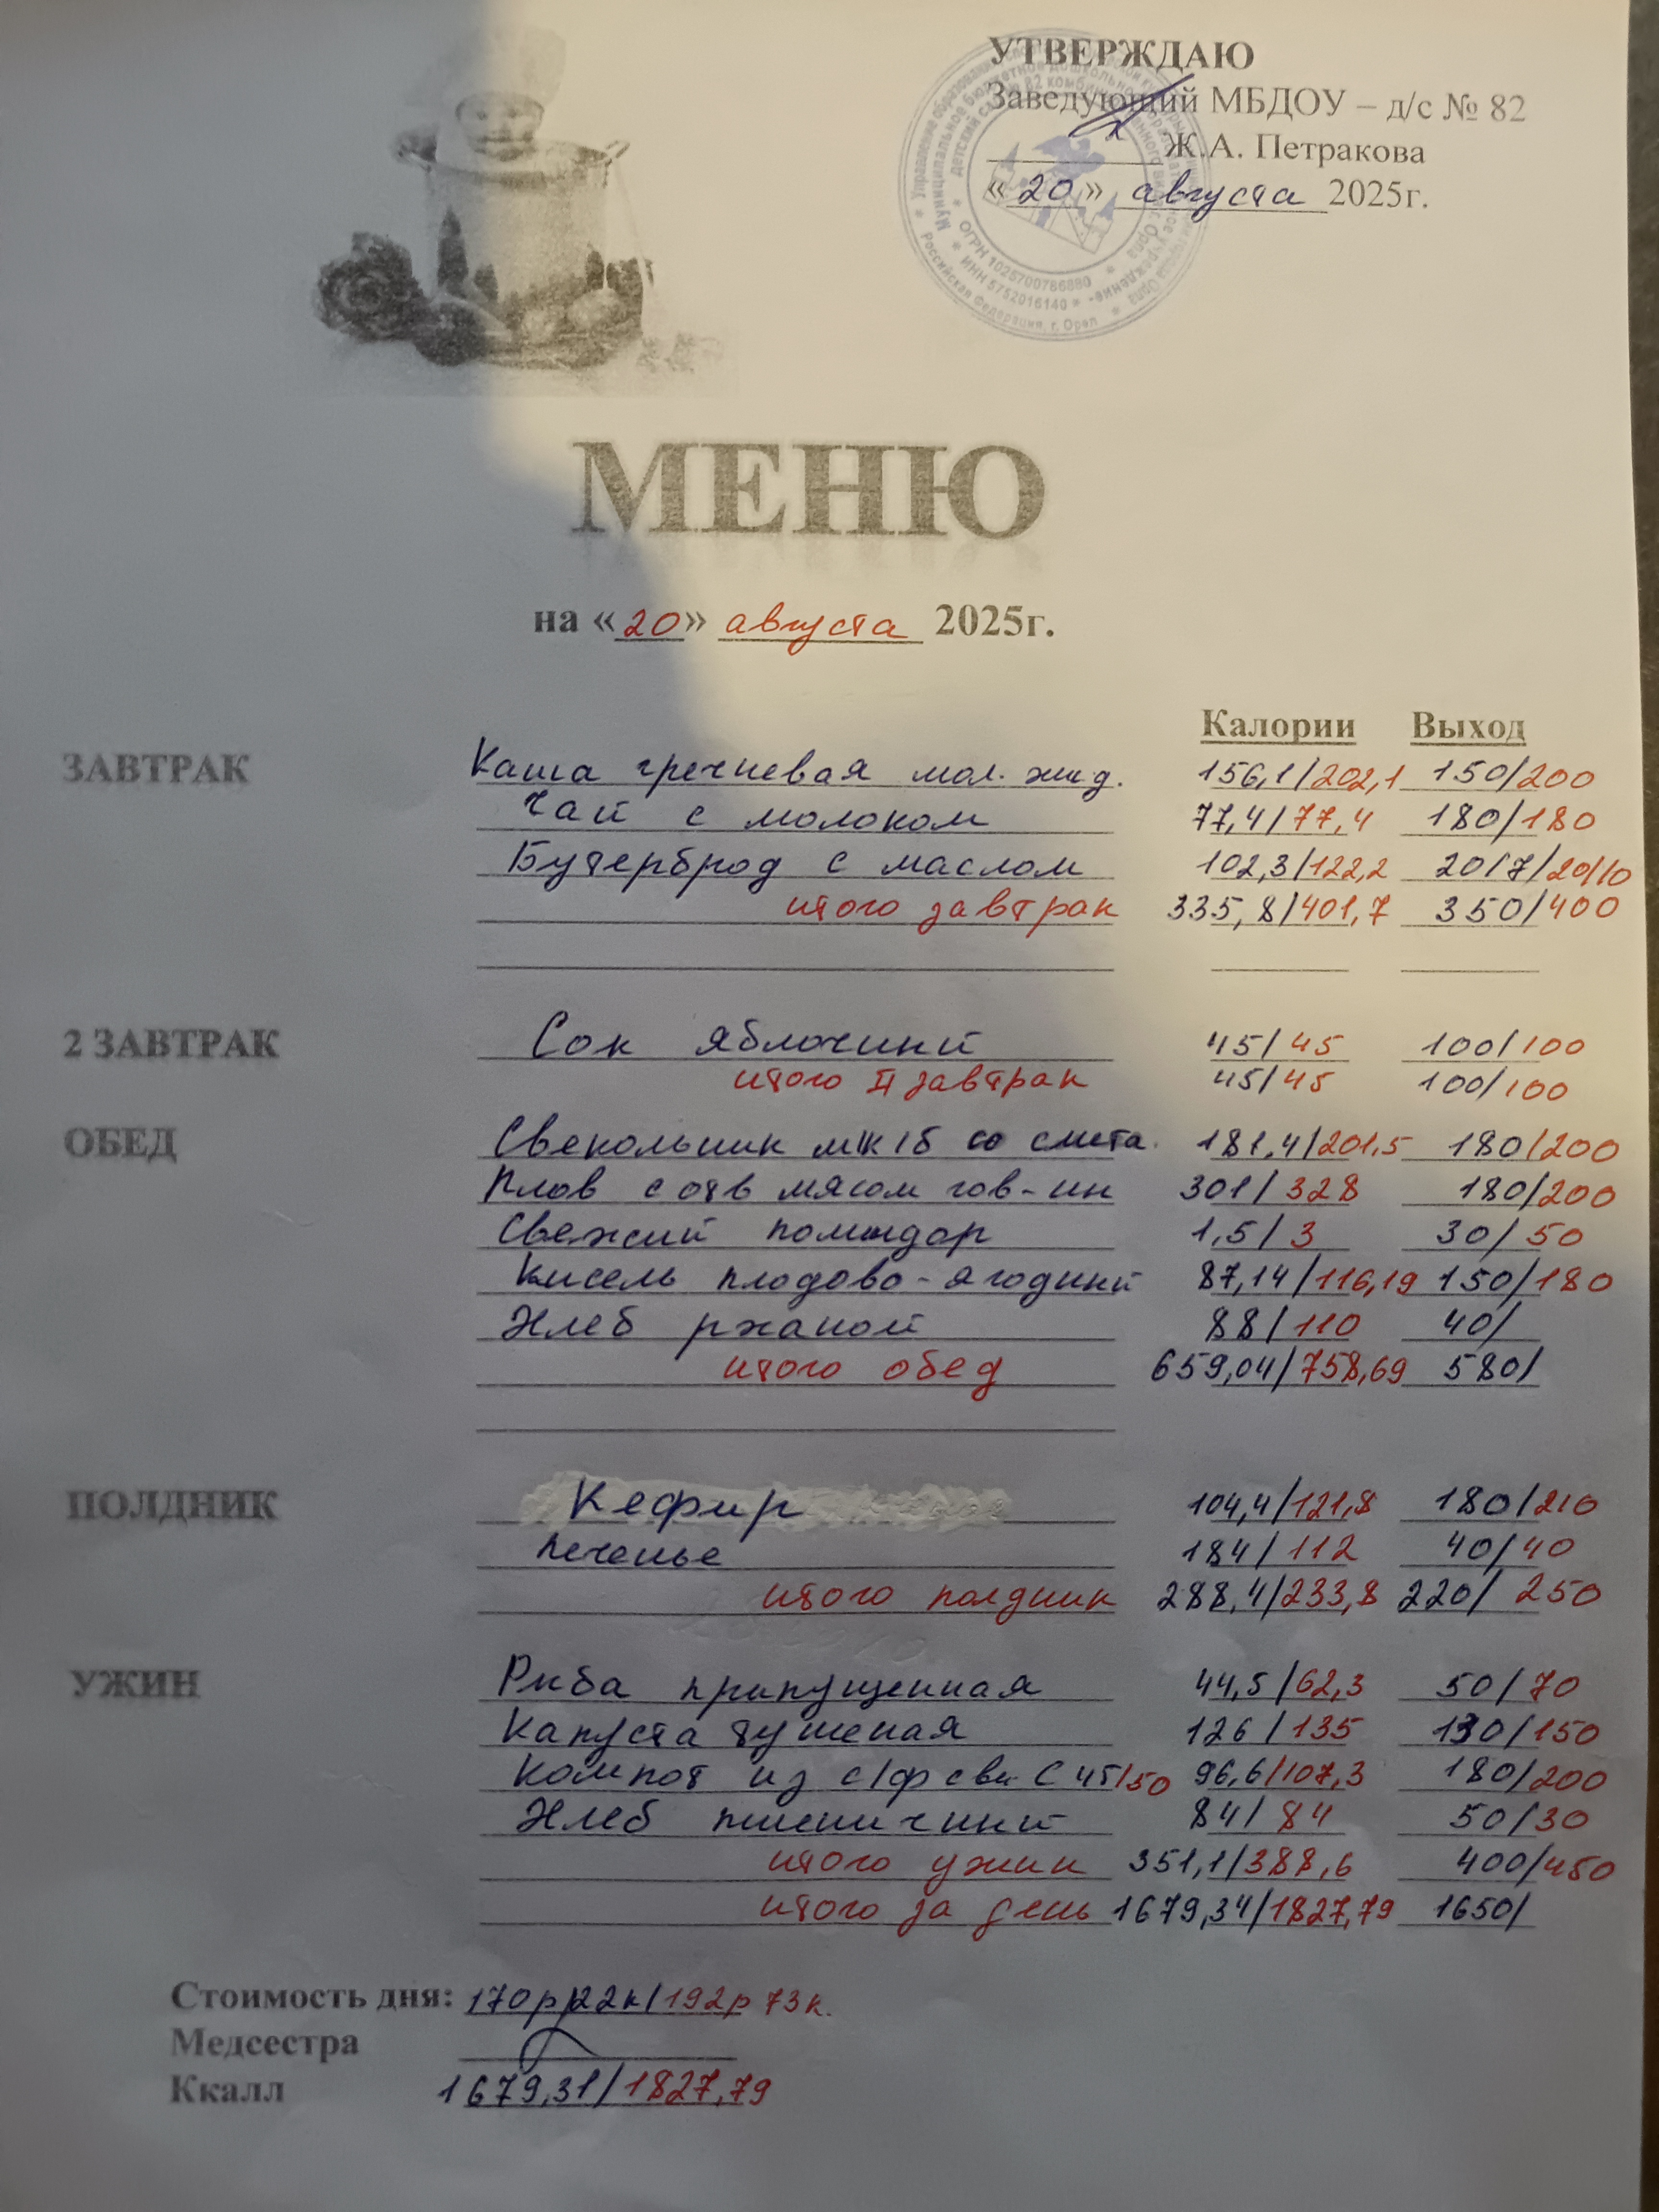 УТВЕРЖДАЮ
Заведующий МБДОУ – д/с № 82
Ж.А. Петракова
«20» августа 2025г.
ОГРН 1025700786880
ИНН 5752016140
Российская Федерация, г. Орел
МЕНЮ
на «20» августа 2025г.
Калории Выход
ЗАВТРАК Каша гречневая мол. жид. 156,1/202,1 150/200
Чай с молоком 77,4/77,4 180/180
Бутерброд с маслом 102,3/122,2 20/7/20/10
итого завтрак 335,8/401,7 350/400
2 ЗАВТРАК Сок яблочный 45/45 100/100
итого II завтрак 45/45 100/100
ОБЕД Свекольник мк/б со смета. 181,4/201,5 180/200
Плов с отв мясом гов-ин 301/328 180/200
Свежий помидор 1,5/3 30/50
Кисель плодово-ягодный 87,14/116,19 150/180
Хлеб ржаной 88/110 40/
итого обед 659,04/758,69 580/
ПОЛДНИК Кефир 104,4/121,8 180/210
Печенье 184/112 40/40
итого полдник 288,4/233,8 220/250
УЖИН Рыба припущенная 44,5/62,3 50/70
Капуста тушеная 126/135 130/150
Компот из с/ф св. С 45/50 96,6/107,3 180/200
Хлеб пшеничный 84/84 50/30
итого ужин 351,1/388,6 400/450
итого за день 1679,34/1827,79 1650/
Стоимость дня: 170р22к/192р73к.
Медсестра
Ккалл 1679,31/1827,79